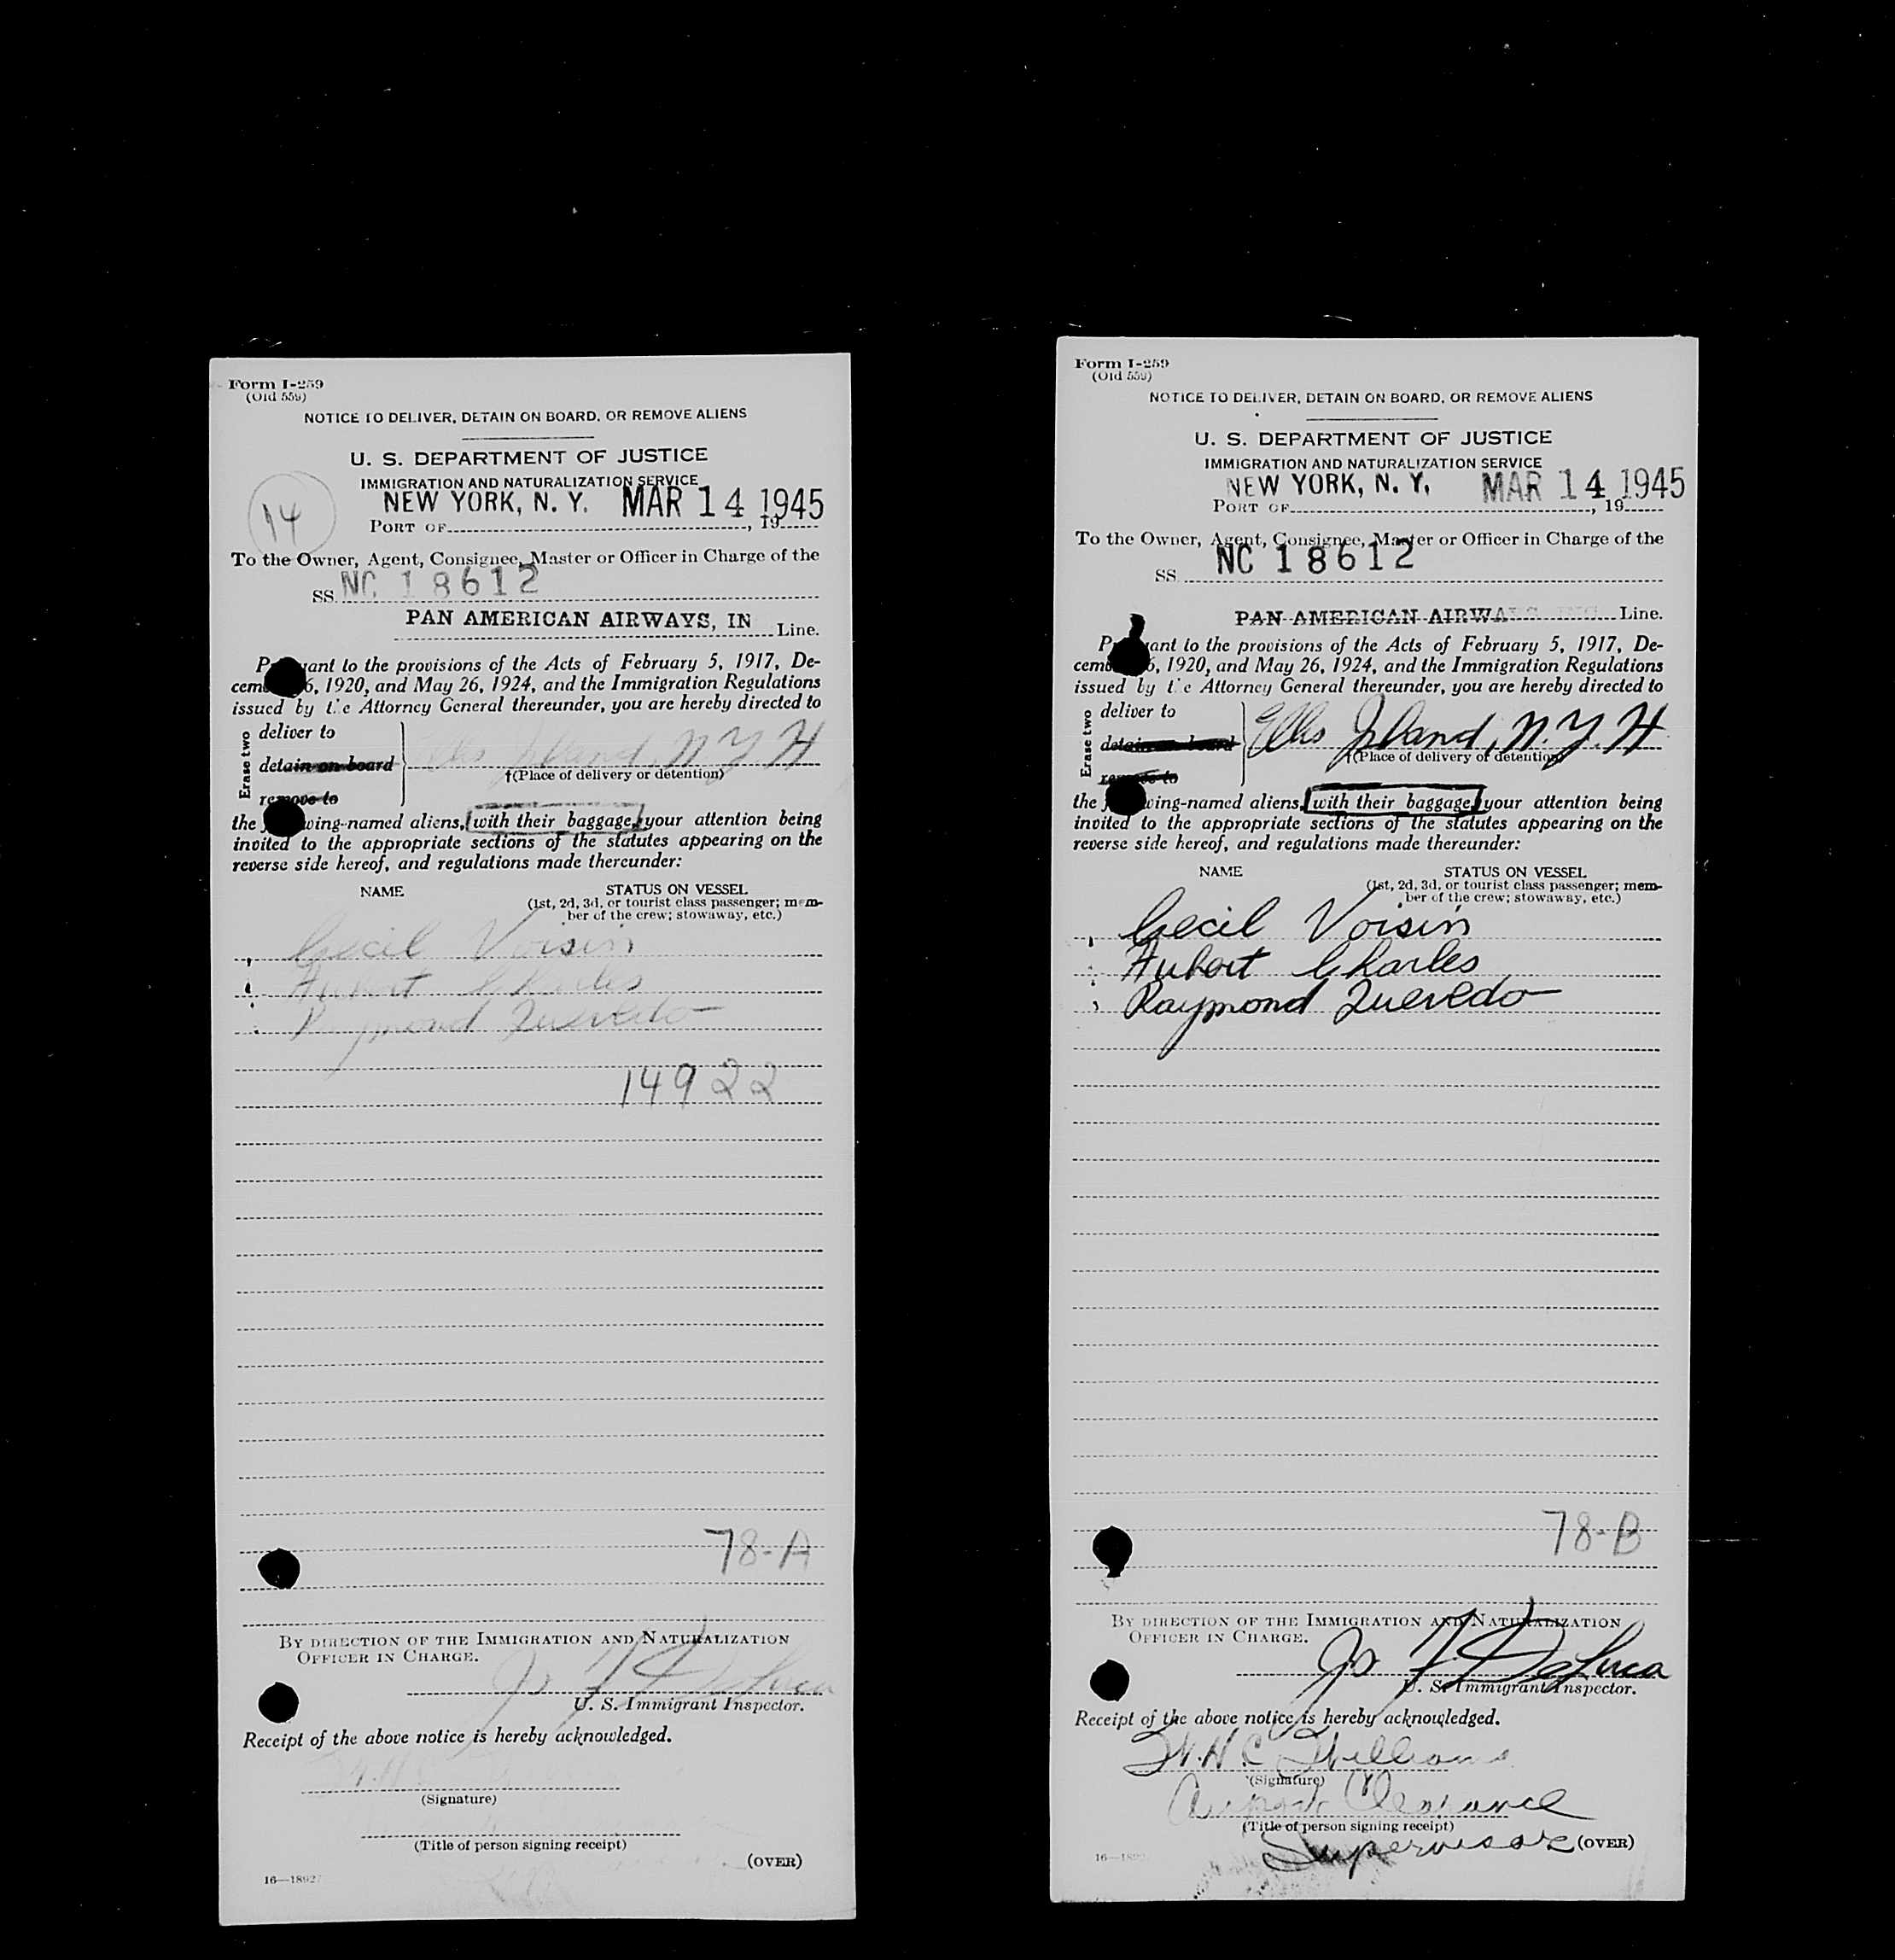 Form I-259
(Old 559)
NOTICE TO DELIVER, DETAIN ON BOARD, OR REMOVE ALIENS
U. S. DEPARTMENT OF JUSTICE
IMMIGRATION AND NATURALIZATION SERVICE
14
NEW YORK, N. Y. MAR 14 1945
PORT OF , 19
To the Owner, Agent, Consignee, Master or Officer in Charge of the
SS. NC 18612
PAN AMERICAN AIRWAYS, IN Line.
ant to the provisions of the Acts of February 5, 1917, De-
cem 6, 1920, and May 26, 1924, and the Immigration Regulations
issued by the Attorney General thereunder, you are hereby directed to
Erase two
deliver to
detain on board
Island, N Y H
†(Place of delivery or detention)
remove to
the wing-named aliens, with their baggage, your attention being
invited to the appropriate sections of the statutes appearing on the
reverse side hereof, and regulations made thereunder:
NAME STATUS ON VESSEL
(1st, 2d, 3d, or tourist class passenger; mem-
ber of the crew; stowaway, etc.)
Cecil Voisin
Hubert Charles
Raymond Quevedo
14922
78-A
BY DIRECTION OF THE IMMIGRATION AND NATURALIZATION
OFFICER IN CHARGE.
U. S. Immigrant Inspector.
Receipt of the above notice is hereby acknowledged.
(Signature)
(Title of person signing receipt)
(OVER)
16—18927
Form I-259
(Old 559)
NOTICE TO DELIVER, DETAIN ON BOARD, OR REMOVE ALIENS
U. S. DEPARTMENT OF JUSTICE
IMMIGRATION AND NATURALIZATION SERVICE
NEW YORK, N. Y. MAR 14 1945
PORT OF , 19
To the Owner, Agent, Consignee, Master or Officer in Charge of the
SS. NC 18612
PAN AMERICAN AIRWAYS INC. Line.
ant to the provisions of the Acts of February 5, 1917, De-
cem 6, 1920, and May 26, 1924, and the Immigration Regulations
issued by the Attorney General thereunder, you are hereby directed to
Erase two
deliver to
detain on board
Ellis Island, N.Y. H
†(Place of delivery or detention)
remove to
the wing-named aliens, with their baggage, your attention being
invited to the appropriate sections of the statutes appearing on the
reverse side hereof, and regulations made thereunder:
NAME STATUS ON VESSEL
(1st, 2d, 3d, or tourist class passenger; mem-
ber of the crew; stowaway, etc.)
Cecil Voisin
Hubert Charles
Raymond Quevedo
78-B
BY DIRECTION OF THE IMMIGRATION AND NATURALIZATION
OFFICER IN CHARGE.
DeLuca
U. S. Immigrant Inspector.
Receipt of the above notice is hereby acknowledged.
W.H.C. Williams
(Signature)
Airport Clearance
(Title of person signing receipt)
Supervisor (OVER)